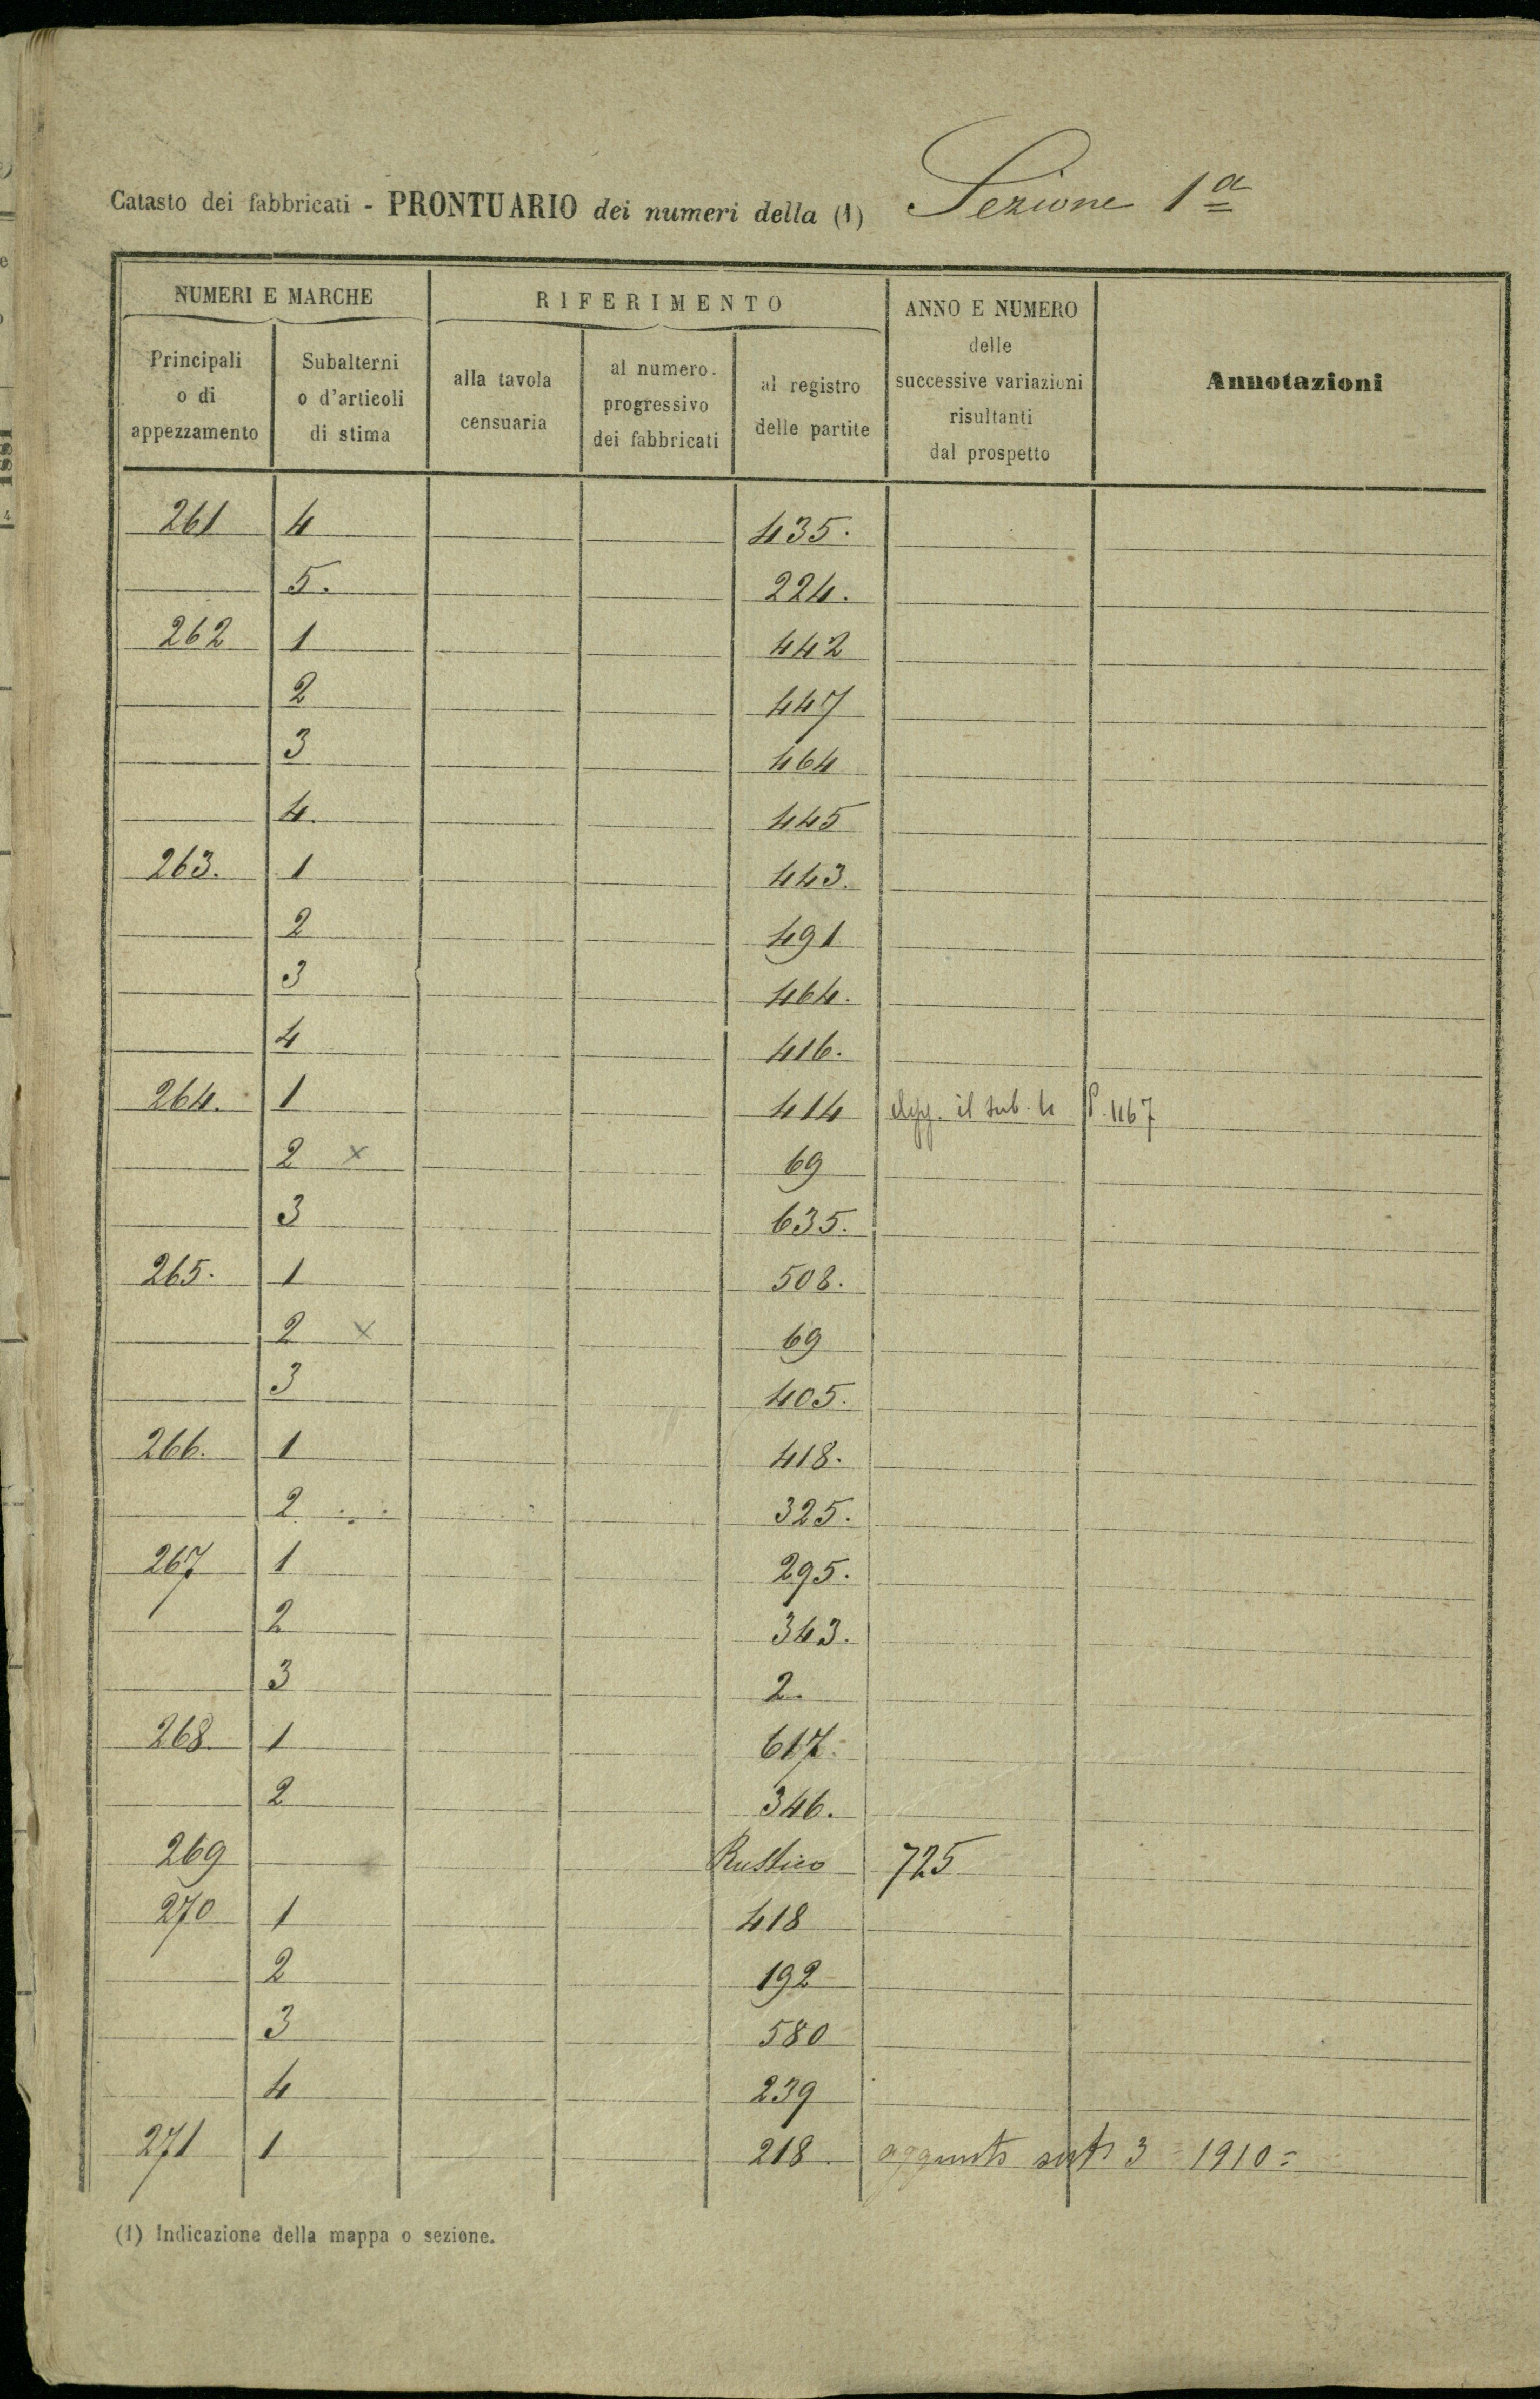 Catasto dei fabbricati - PRONTUARIO dei numeri della (1) Sezione 1ª
NUMERI E MARCHE
RIFERIMENTO
ANNO E NUMERO
delle
successive variazioni
risultanti
dal prospetto
Annotazioni
Principali
o di
appezzamento
Subalterni
o d'articoli
di stima
alla tavola
censuaria
al numero.
progressivo
dei fabbricati
al registro
delle partite
261 4 435.
5. 224.
262 1 442
2 447
3 464
4. 445
263. 1 443.
2 491
3 464.
4 416.
264. 1 414 il sub. 4 P. 1167
2 x 69
3 635.
265. 1 508.
2 x 69
3 405.
266. 1 418.
2 325.
267 1 295.
2 343.
3 2.
268. 1 617.
2 346.
269 Rustico 725
270 1 418
2 192
3 580
4 239
271 1 218. aggiunto sub 3 = 1910=
(1) Indicazione della mappa o sezione.
1881